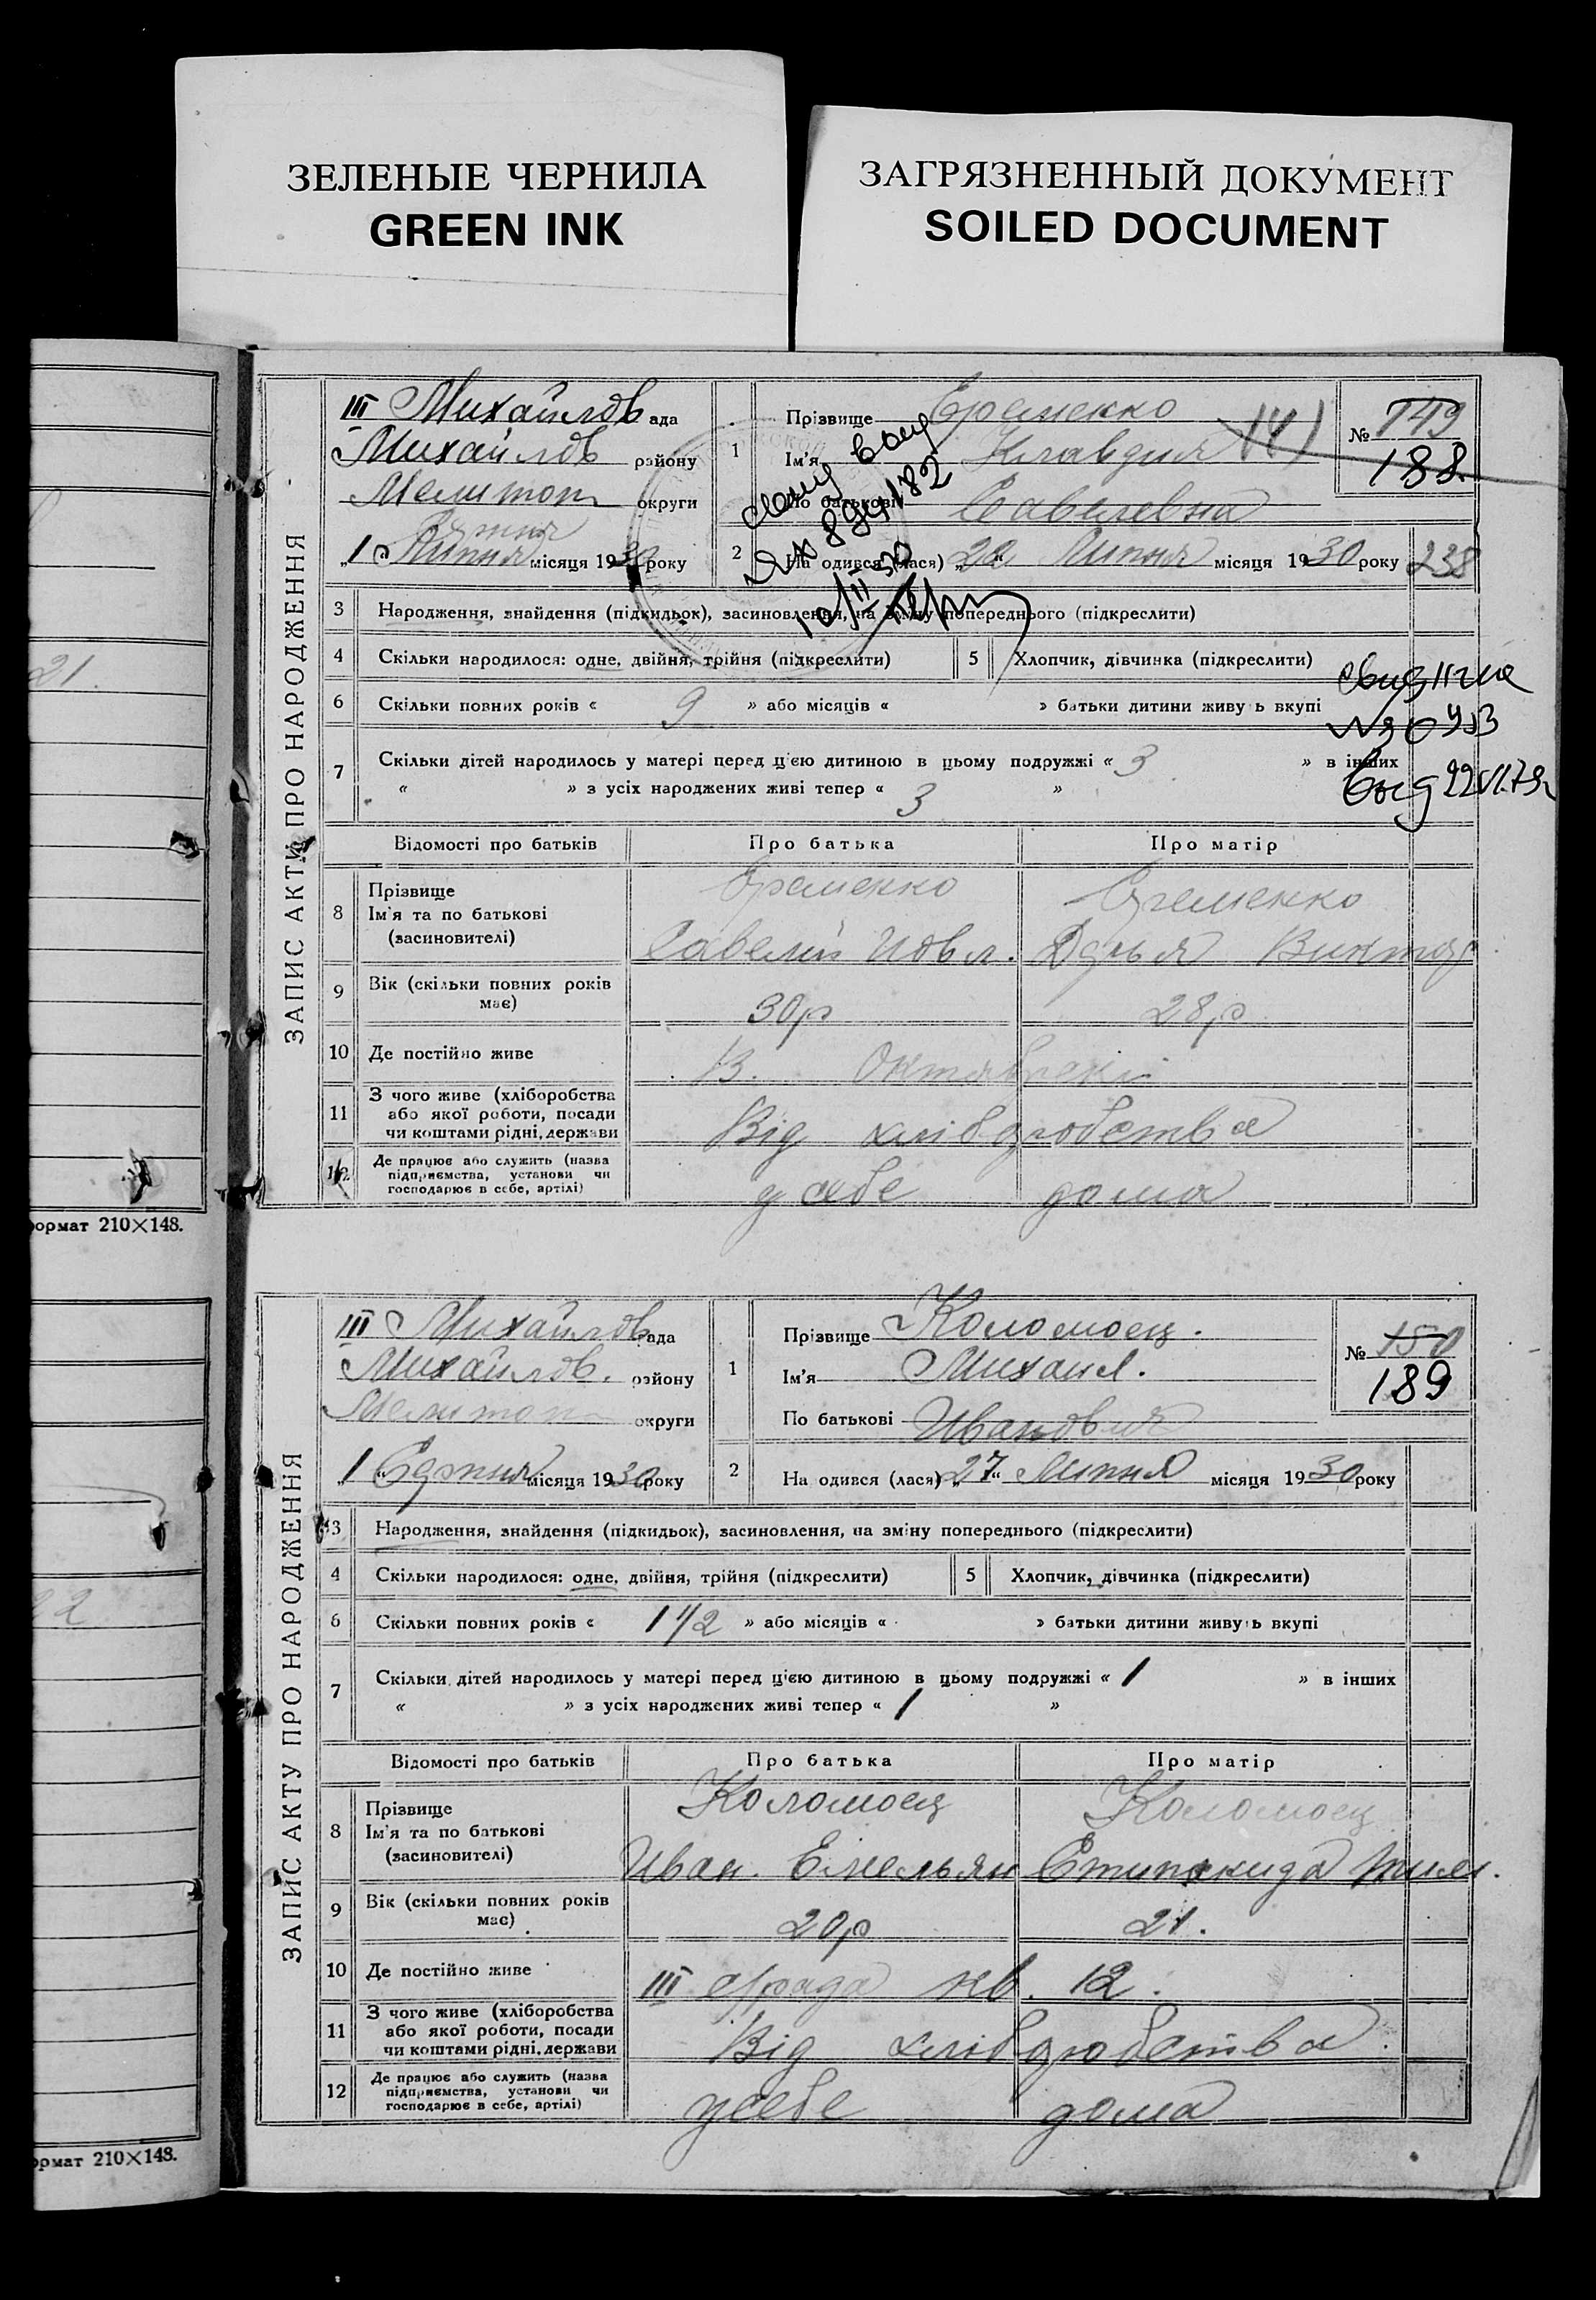 ЗЕЛЕНЫЕ ЧЕРНИЛА
GREEN INK
ЗАГРЯЗНЕННЫЙ ДОКУМЕНТ
SOILED DOCUMENT
21.
формат 210×148.
22
формат 210×148.
ЗАПИС АКТУ ПРО НАРОДЖЕННЯ
III Михайлов ада
Михайлов району
Мелитоп округи
Серпня
„1“ Липня місяця 1930 року
1
Прізвище Єременко
Ім'я Клавдия
По батькові Савелевна
141
№ 149
188.
2
На одився (лася) „20“ Липня місяця 1930 року
238
3 Народження, знайдення (підкидьок), засиновлення, на зміну попереднього (підкреслити)
4 Скільки народилося: одне, двійня, трійня (підкреслити)
5 Хлопчик, дівчинка (підкреслити)
6 Скільки повних років « 9 » або місяців « » батьки дитини живу ь вкупі
7 Скільки дітей народилось у матері перед цією дитиною в цьому подружжі « 3 » в інших
« » з усіх народжених живі тепер « 3 »
выд 22
Відомості про батьків
Про батька
Про матір
8 Прізвище
Ім'я та по батькові
(засиновителі)
Єременко
Савелий Иовл.
Єременко
Дарья
9 Вік (скільки повних років має)
30р
28р
10 Де постійно живе
В. Октябрскі
11 З чого живе (хліборобства
або якої роботи, посади
чи коштами рідні, держави
Від хліборобства
12 Де працює або служить (назва
підприємства, установи чи
господарює в себе, артілі)
у себе дома
ЗАПИС АКТУ ПРО НАРОДЖЕННЯ
III Михайлов рада
Михайлов. району
Мелитоп округи
„1“ Серпня місяця 1930 року
1
Прізвище Коломоец.
Ім'я Михаил.
По батькові Иванович
№ 150
189
2
На одився (лася) „27“ Липня місяця 1930 року
3 Народження, знайдення (підкидьок), засиновлення, на зміну попереднього (підкреслити)
4 Скільки народилося: одне, двійня, трійня (підкреслити)
5 Хлопчик, дівчинка (підкреслити)
6 Скільки повних років « 1 1/2 » або місяців « » батьки дитини живу ь вкупі
7 Скільки дітей народилось у матері перед цією дитиною в цьому подружжі « 1 » в інших
« » з усіх народжених живі тепер « 1 »
Відомості про батьків
Про батька
Про матір
8 Прізвище
Ім'я та по батькові
(засиновителі)
Коломоец
Иван. Емельян
Коломоец
9 Вік (скільки повних років має)
20р
21.
10 Де постійно живе
III с/рада кв. 12.
11 З чого живе (хліборобства
або якої роботи, посади
чи коштами рідні, держави
Від хліборобства
12 Де працює або служить (назва
підприємства, установи чи
господарює в себе, артілі)
у себе дома